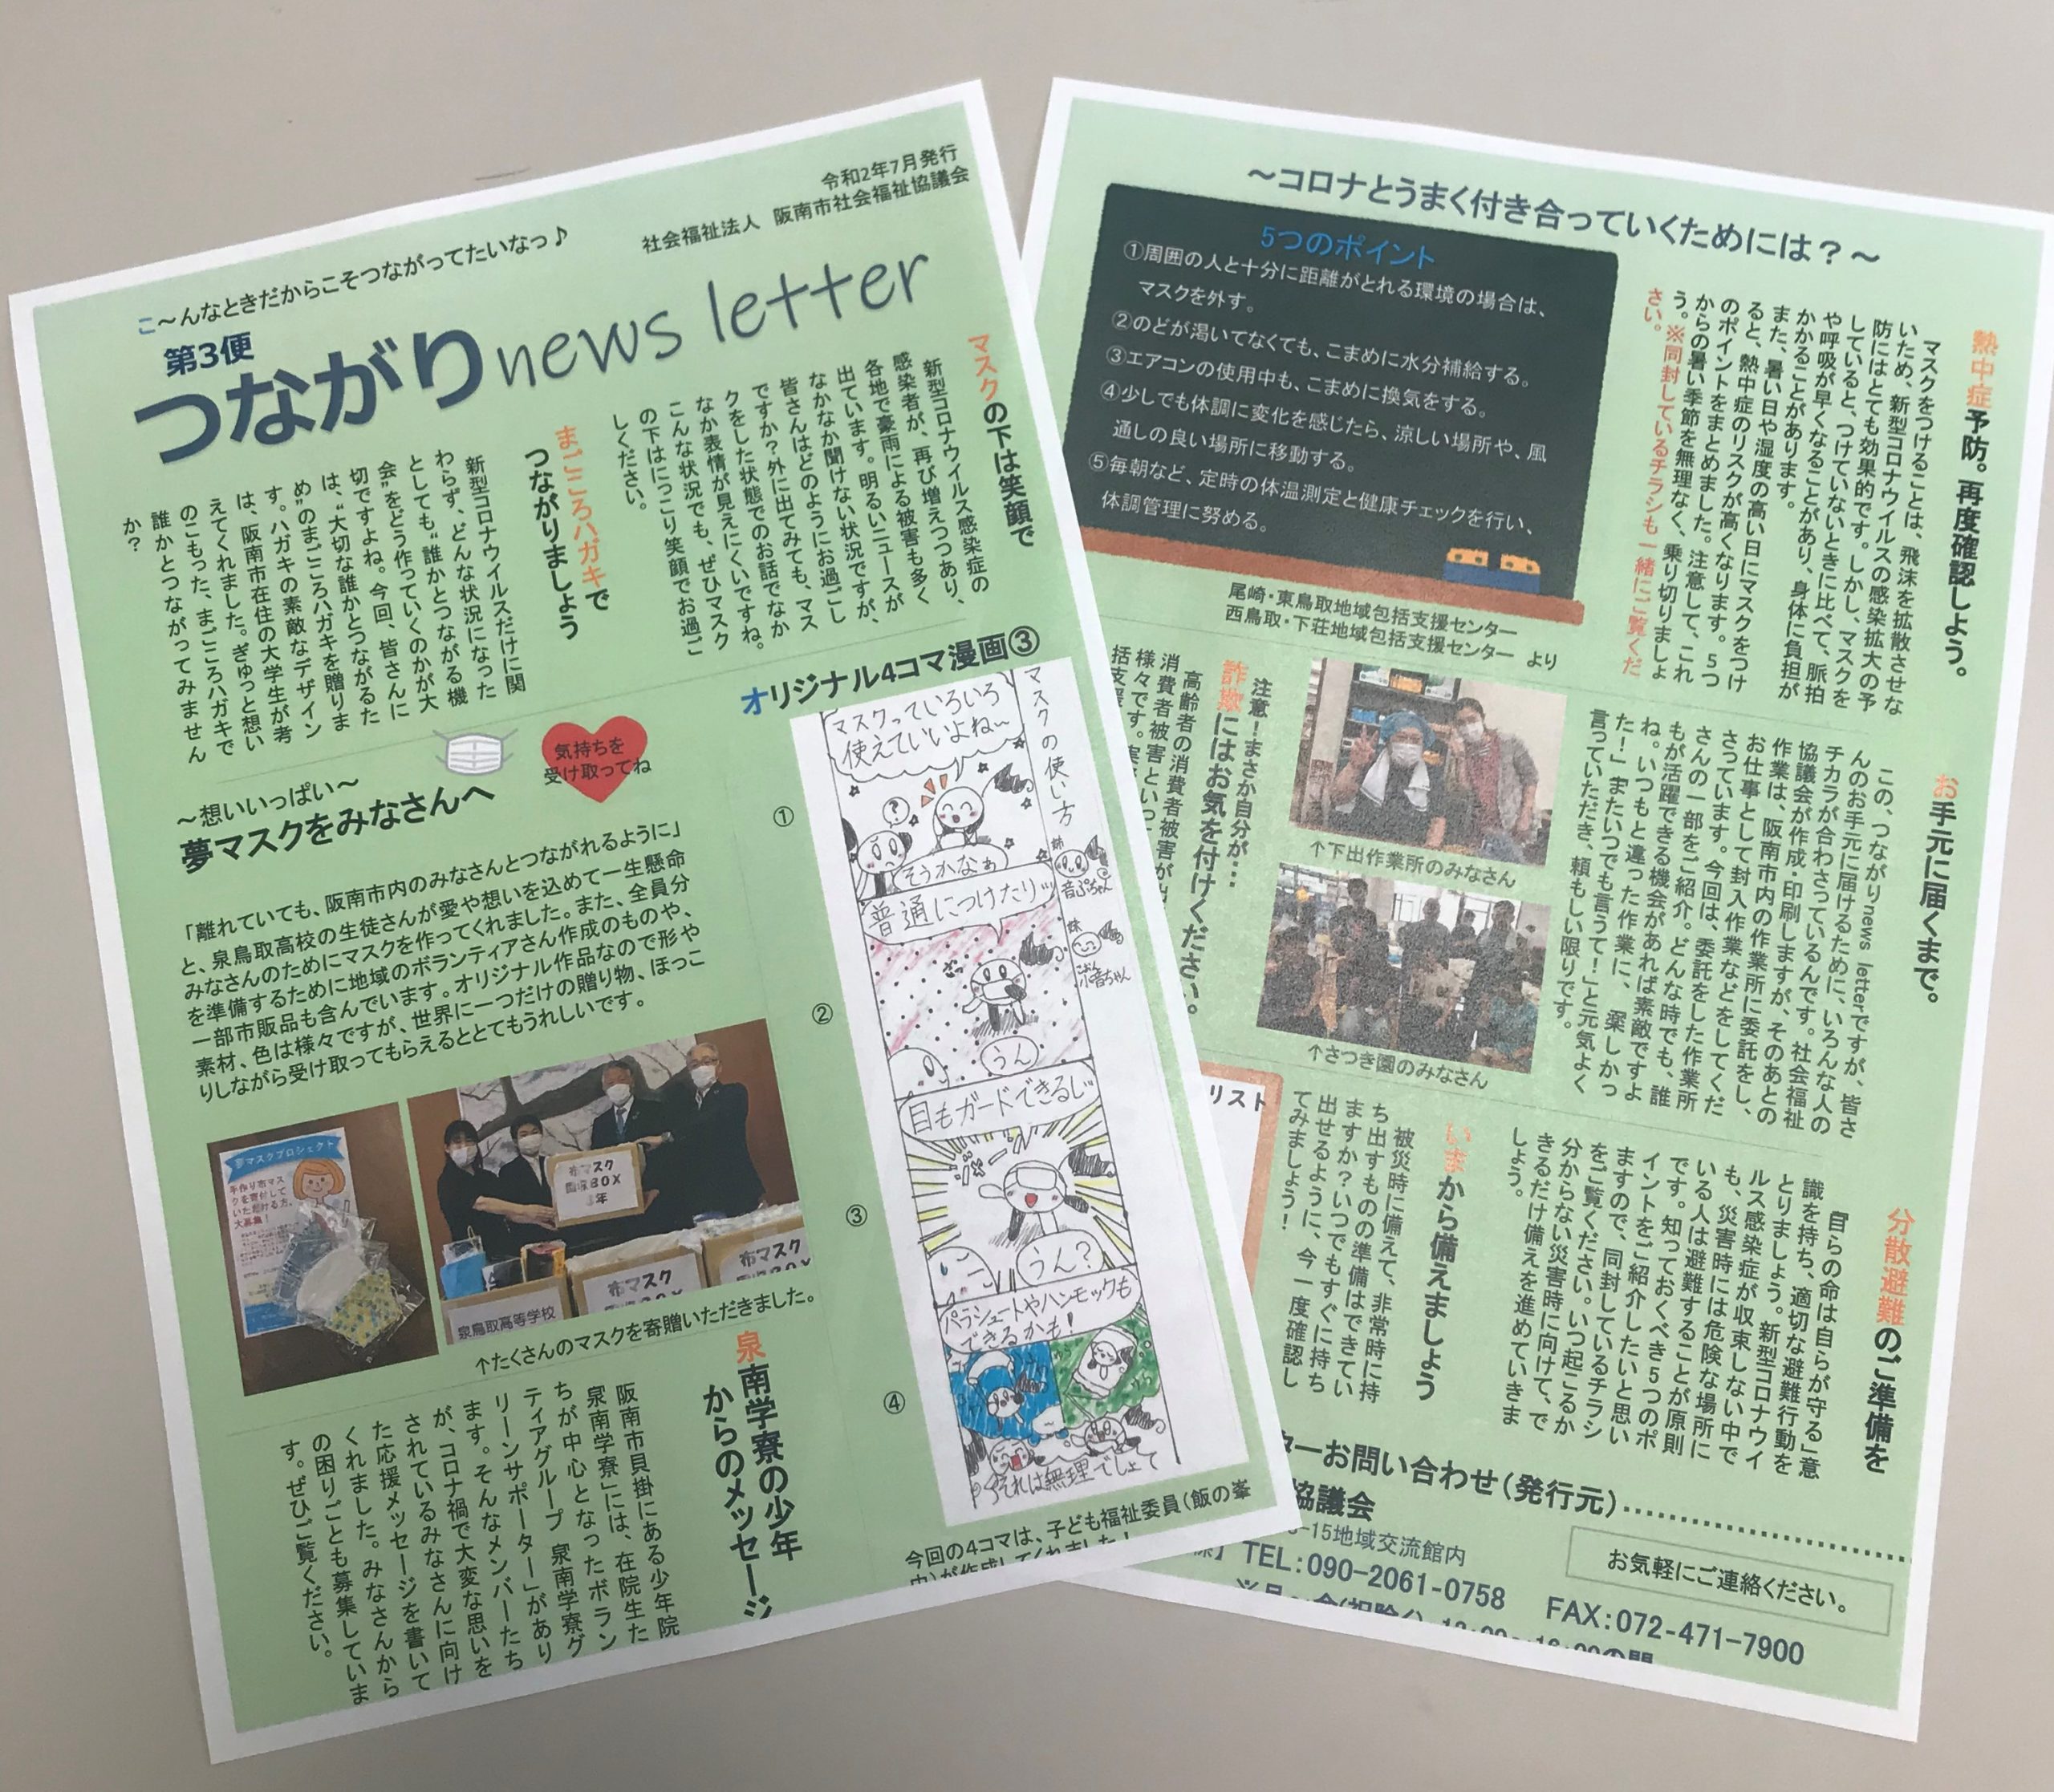 令和2年7月発行
社会福祉法人 阪南市社会福祉協議会
こ～んなときだからこそつながってたいなっ♪
第3便
つながりnews letter
マスクの下は笑顔で
新型コロナウイルス感染症の
感染者が、再び増えつつあり、
各地で豪雨による被害も多く
出ています。明るいニュースが
なかなか聞けない状況ですが、
皆さんはどのようにお過ごし
ですか？外に出てみても、マス
クをした状態でのお話でなか
なか表情が見えにくいですね。
こんな状況でも、ぜひマスク
の下はにっこり笑顔でお過ご
しください。
まごころハガキで
つながりましょう
新型コロナウイルスだけに関
わらず、どんな状況になった
としても“誰かとつながる機
会”をどう作っていくのかが大
切ですよね。今回、皆さんに
は、“大切な誰かとつながるた
め”のまごころハガキを贈りま
す。ハガキの素敵なデザイン
は、阪南市在住の大学生が考
えてくれました。ぎゅっと想い
のこもった、まごころハガキで
誰かとつながってみません
か？
～想いいっぱい～
夢マスクをみなさんへ
気持ちを
受け取ってね
「離れていても、阪南市内のみなさんとつながれるように」
と、泉鳥取高校の生徒さんが愛や想いを込めて一生懸命
みなさんのためにマスクを作ってくれました。また、全員分
を準備するために地域のボランティアさん作成のものや、
一部市販品も含んでいます。オリジナル作品なので形や
素材、色は様々ですが、世界に一つだけの贈り物、ほっこ
りしながら受け取ってもらえるととてもうれしいです。
夢マスクプロジェクト
手作り布マス
クを寄付して
いただける方、
大募集！
布マスク
回収BOX
3年
布マスク
布マスク
泉鳥取高等学校
↑たくさんのマスクを寄贈いただきました。
泉南学寮の少年
からのメッセージ
阪南市貝掛にある少年院
泉南学寮”には、在院生た
ちが中心となったボラン
ティアグループ 泉南学寮グ
リーンサポーター」があり
ます。そんなメンバーたち
が、コロナ禍で大変な思いを
されているみなさんに向け
た応援メッセージを書いて
くれました。みなさんから
の困りごとも募集していま
す。ぜひご覧ください。
オリジナル4コマ漫画③
マスクの使い方
マスクっていろいろ
使えていいよね～
？
そうかなぁ
姉
音ぷちゃん
妹
小音ちゃん
①
普通につけたりッ
うん
②
目もガードできるし
うん？
③
パラシュートやハンモックも
できるかも！
それは無理でしょ
④
今回の4コマは、子ども福祉委員（飯の峯
中）が作成してくれました！
～コロナとうまく付き合っていくためには？～
5つのポイント
①周囲の人と十分に距離がとれる環境の場合は、
マスクを外す。
②のどが渇いてなくても、こまめに水分補給する。
③エアコンの使用中も、こまめに換気をする。
④少しでも体調に変化を感じたら、涼しい場所や、風
通しの良い場所に移動する。
⑤毎朝など、定時の体温測定と健康チェックを行い、
体調管理に努める。
尾崎・東鳥取地域包括支援センター
西鳥取・下荘地域包括支援センター より
熱中症予防。再度確認しよう。
マスクをつけることは、飛沫を拡散させな
いため、新型コロナウイルスの感染拡大の予
防にはとても効果的です。しかし、マスクを
していると、つけていないときに比べて、脈拍
や呼吸が早くなることがあり、身体に負担が
かかることがあります。
また、暑い日や湿度の高い日にマスクをつけ
ると、熱中症のリスクが高くなります。5つ
のポイントをまとめました。注意して、これ
からの暑い季節を無理なく、乗り切りましょ
う。※同封しているチラシも一緒にご覧くだ
さい。
お手元に届くまで。
この、つながりnews letterですが、皆さ
んのお手元に届けるために、いろんな人の
チカラが合わさっているんです。社会福祉
協議会が作成・印刷しますが、そのあとの
作業は、阪南市内の作業所に委託をし、
お仕事として封入作業などをしてくだ
さっています。今回は、委託をした作業所
さんの一部をご紹介。どんな時でも、誰
もが活躍できる機会があれば素敵ですよ
ね。いつもと違った作業に、「楽しかっ
た！」「またいつでも言うて！」と元気よく
言っていただき、頼もしい限りです。
↑下出作業所のみなさん
↑さつき園のみなさん
注意！まさか自分が…
詐欺にはお気を付けください。
高齢者の消費者被害が
消費者被害といっ
様々です。実
括支援
リスト
分散避難のご準備を
『自らの命は自らが守る』意
識を持ち、適切な避難行動を
とりましょう。新型コロナウイ
ルス感染症が収束しない中で
も、災害時には危険な場所に
いる人は避難することが原則
です。知っておくべき5つのポ
イントをご紹介したいと思い
ますので、同封しているチラシ
をご覧ください。いつ起こるか
分からない災害時に向けて、で
きるだけ備えを進めていきま
しょう。
いまから備えましょう
被災時に備えて、非常時に持
ち出すものの準備はできてい
ますか？いつでもすぐに持ち
出せるように、今一度確認し
てみましょう！
ターお問い合わせ（発行元）
協議会
-15地域交流館内
お気軽にご連絡ください。
TEL：090-2061-0758
FAX：072-471-7900